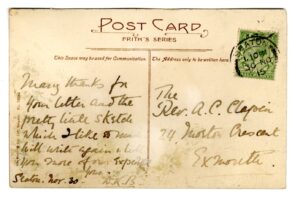 POST CARD
FRITH'S SERIES
This Space may be used for Communication.
The Address only to be written here.
SEATON
Many thanks for
your letter and the
pretty little sketch
which I like
will write again
you more of our
Seaton. Nov. 30.
The
Rev. A.C. Clapin
24, Morton Crescent
Exmouth.